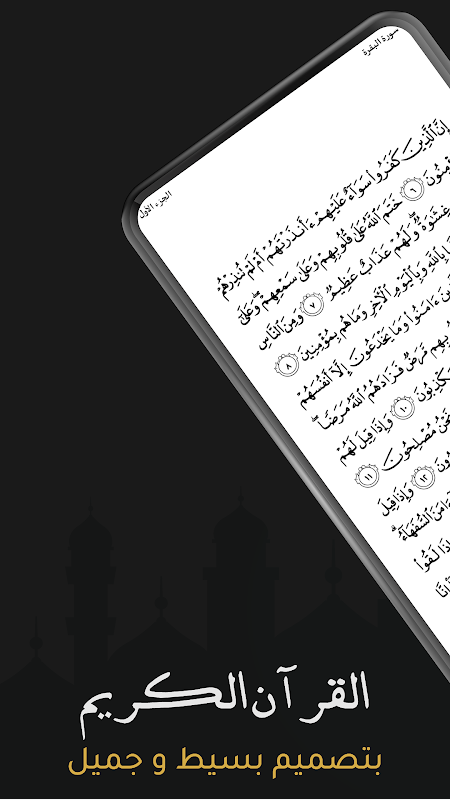 سورة البقرة
الجزء الأول
إِنَّ ٱلَّذِينَ كَفَرُوا۟ سَوَآءٌ عَلَيْهِمْ ءَأَنذَرْتَهُمْ أَمْ لَمْ تُنذِرْهُمْ
ؤْمِنُونَ ٦ خَتَمَ ٱللَّهُ عَلَىٰ قُلُوبِهِمْ وَعَلَىٰ سَمْعِهِمْ ۖ وَعَلَىٰٓ
غِشَـٰوَةٌ ۖ وَلَهُمْ عَذَابٌ عَظِيمٌ ٧ وَمِنَ ٱلنَّاسِ
ا بِٱللَّهِ وَبِٱلْيَوْمِ ٱلْـَٔاخِرِ وَمَا هُم بِمُؤْمِنِينَ ٨
ينَ ءَامَنُوا۟ وَمَا يَخْدَعُونَ إِلَّآ أَنفُسَهُمْ
وبِهِم مَّرَضٌ فَزَادَهُمُ ٱللَّهُ مَرَضًا ۖ
يَكْذِبُونَ ١٠ وَإِذَا قِيلَ لَهُمْ
نَحْنُ مُصْلِحُونَ ١١
ونَ ١٢ وَإِذَا قِيلَ
ءَامَنَ ٱلسُّفَهَآءُ ۗ
إِذَا لَقُوا۟
القرآن الكريم
بتصميم بسيط و جميل